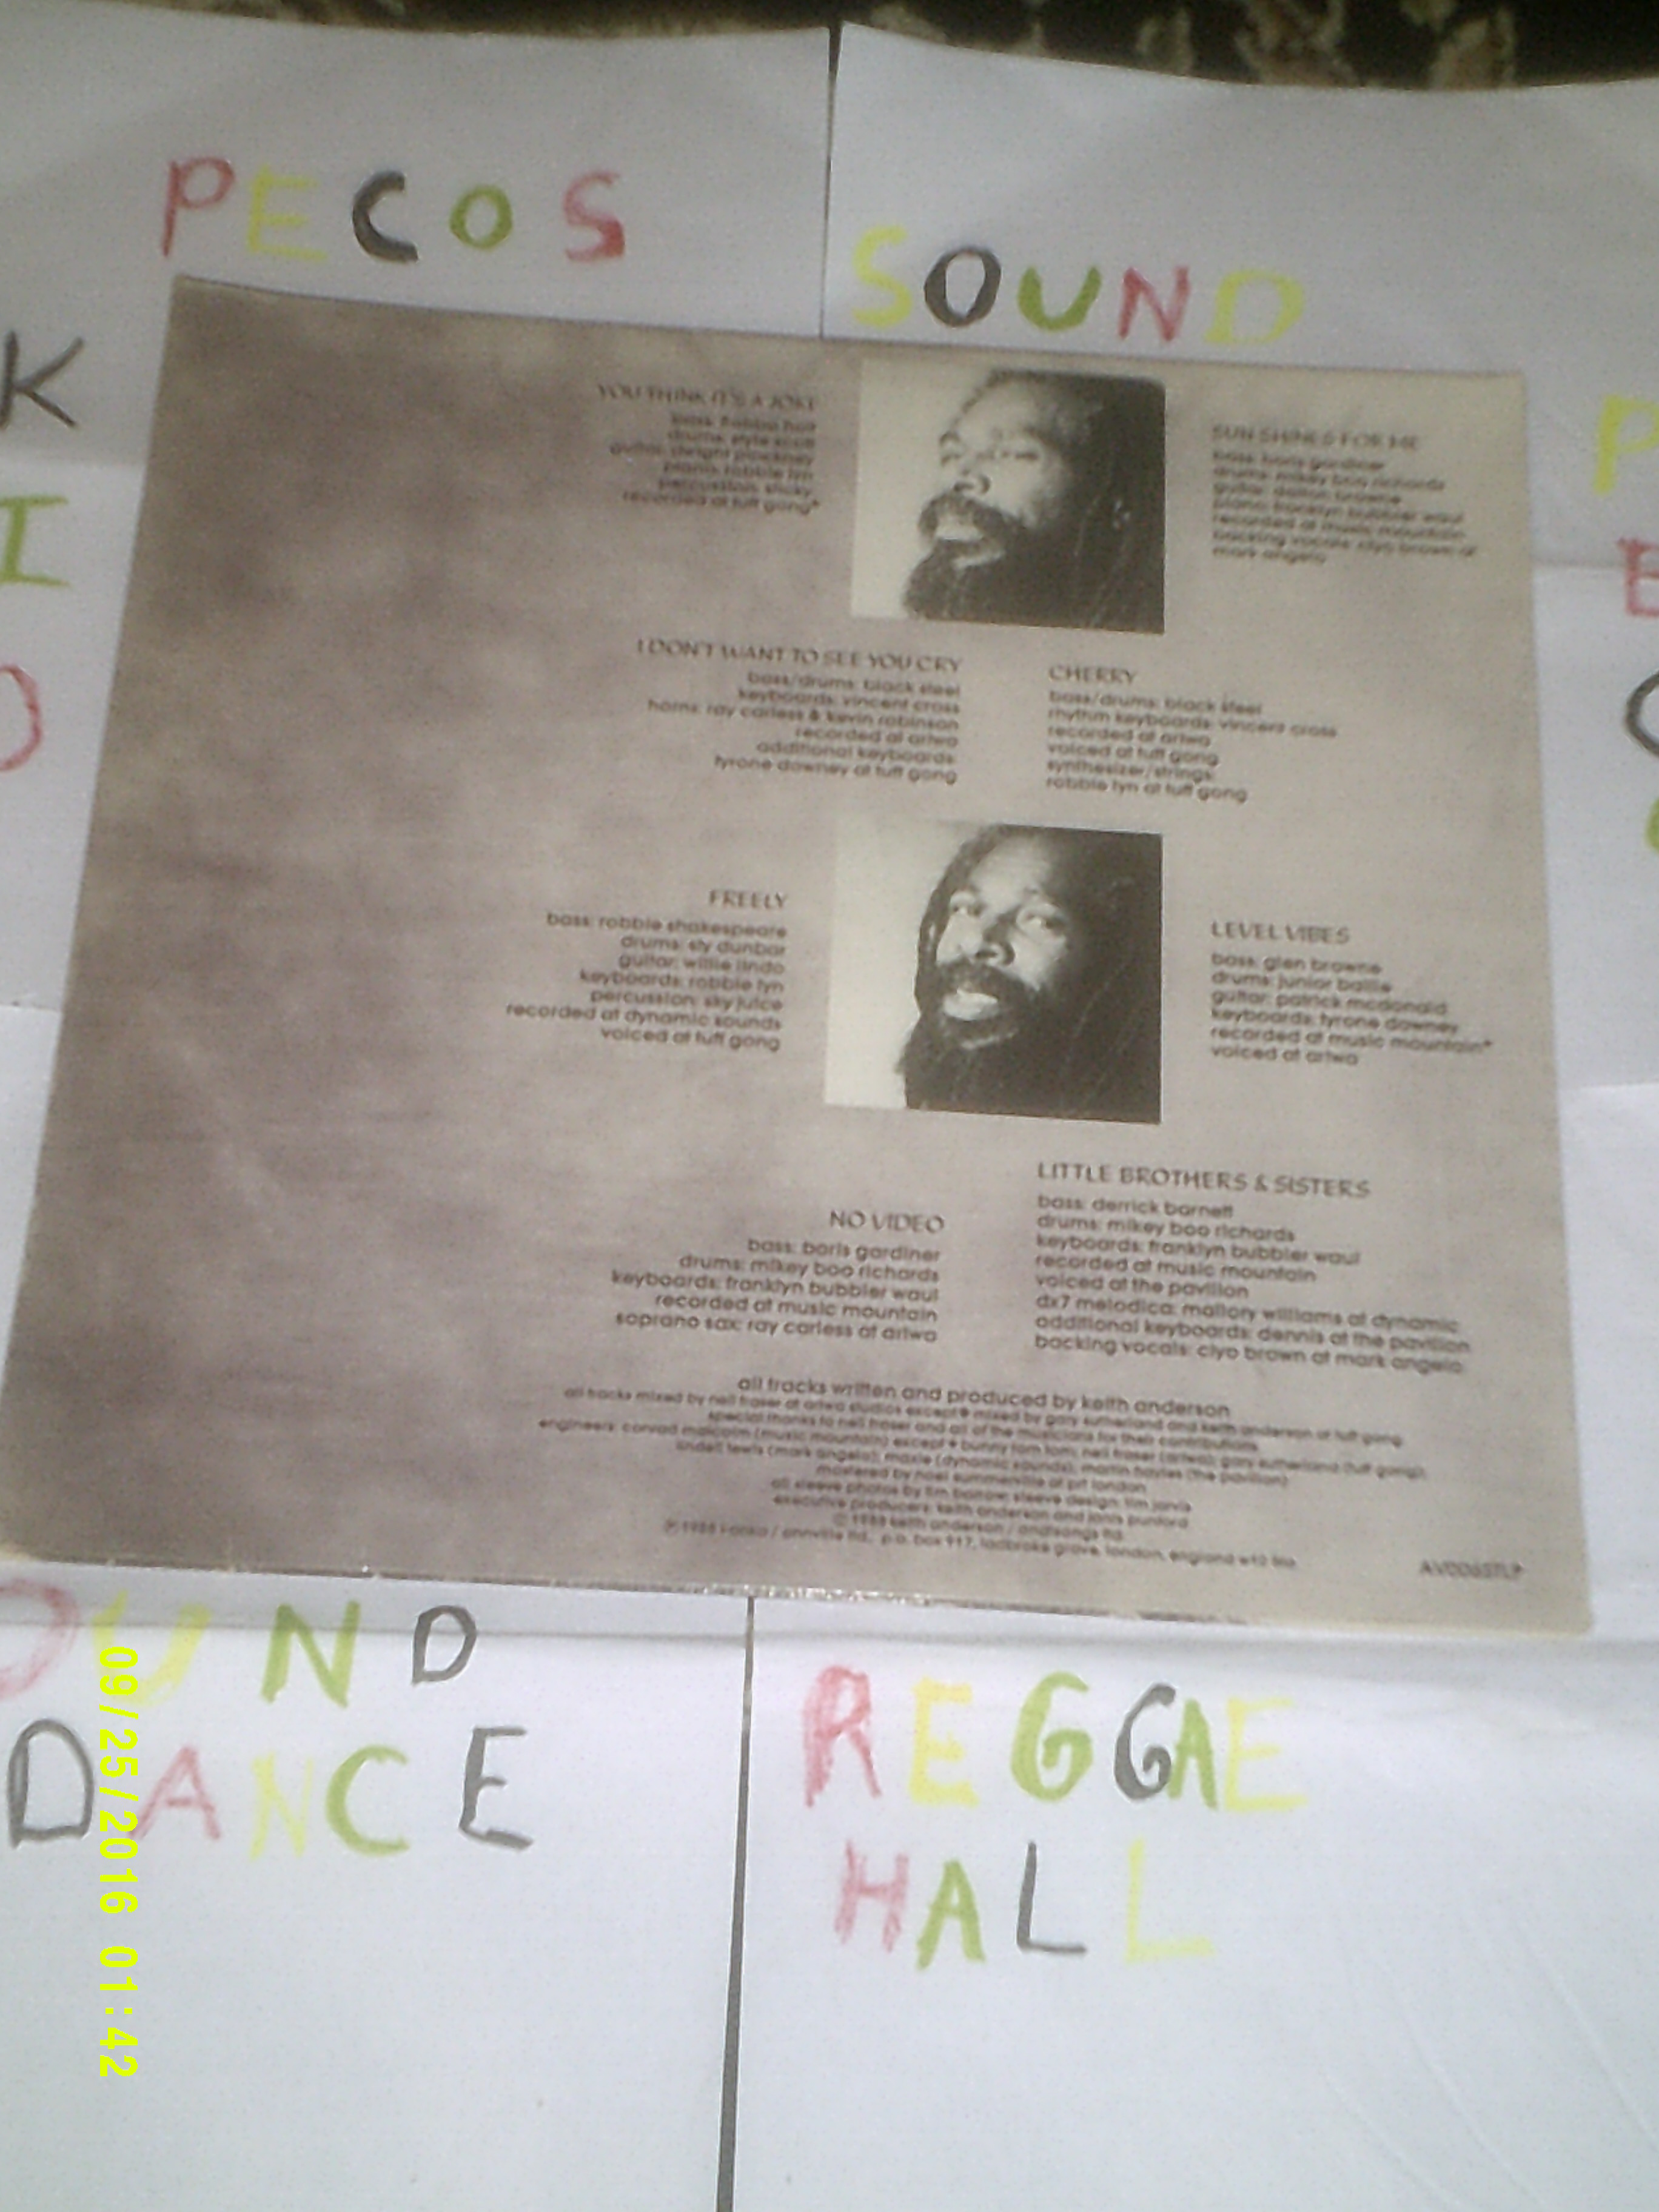 PECOS
SOUND
K
I
YOU THINK IT'S A JOKE
bass: flabba holt
drums: style scott
guitar: dwight pinckney
piano: robbie lyn
percussion: sticky
recorded at tuff gong*
SUN SHINES FOR ME
bass: boris gardiner
drums: mikey boo richards
guitar: dalton browne
piano: franklyn bubbler waul
recorded at music mountain
backing vocals: clyo brown at
mark angelo
I DON'T WANT TO SEE YOU CRY
bass/drums: black steel
keyboards: vincent cross
horns: ray carless & kevin robinson
recorded at ariwa
additional keyboards:
tyrone downey at tuff gong
CHERRY
bass/drums: black steel
rhythm keyboards: vincent cross
recorded at ariwa
voiced at tuff gong
synthesizer/strings:
robbie lyn at tuff gong
FREELY
bass: robbie shakespeare
drums: sly dunbar
guitar: willie lindo
keyboards: robbie lyn
percussion: sky juice
recorded at dynamic sounds
voiced at tuff gong
LEVEL VIBES
bass: glen browne
drums: junior bailie
guitar: patrick mcdonald
keyboards: tyrone downey
recorded at music mountain*
voiced at ariwa
NO VIDEO
bass: boris gardiner
drums: mikey boo richards
keyboards: franklyn bubbler waul
recorded at music mountain
soprano sax: ray carless at ariwa
LITTLE BROTHERS & SISTERS
bass: derrick barnett
drums: mikey boo richards
keyboards: franklyn bubbler waul
recorded at music mountain
voiced at the pavilion
dx7 melodica: mallory williams at dynamic
additional keyboards: dennis at the pavilion
backing vocals: clyo brown at mark angelo
all tracks written and produced by keith anderson
all tracks mixed by neil fraser at ariwa studios except * mixed by gary sutherland and keith anderson at tuff gong
special thanks to neil fraser and all of the musicians for their contributions
engineers: conrad malcolm (music mountain) except + bunny tom tom; neil fraser (ariwa); gary sutherland (tuff gong);
lindell lewis (mark angelo); maxie (dynamic sounds); martin hayles (the pavilion)
mastered by noel summerville at prt london
all sleeve photos by tim barrow; sleeve design: tim jarvis
executive producers: keith anderson and janis
© 1988 keith anderson / andisongs ltd.
/ annville ltd., p.o. box 917, ladbroke grove, london, england w10
P
E
OUND
DANCE
REGGAE
HALL
09/25/2016 01:42